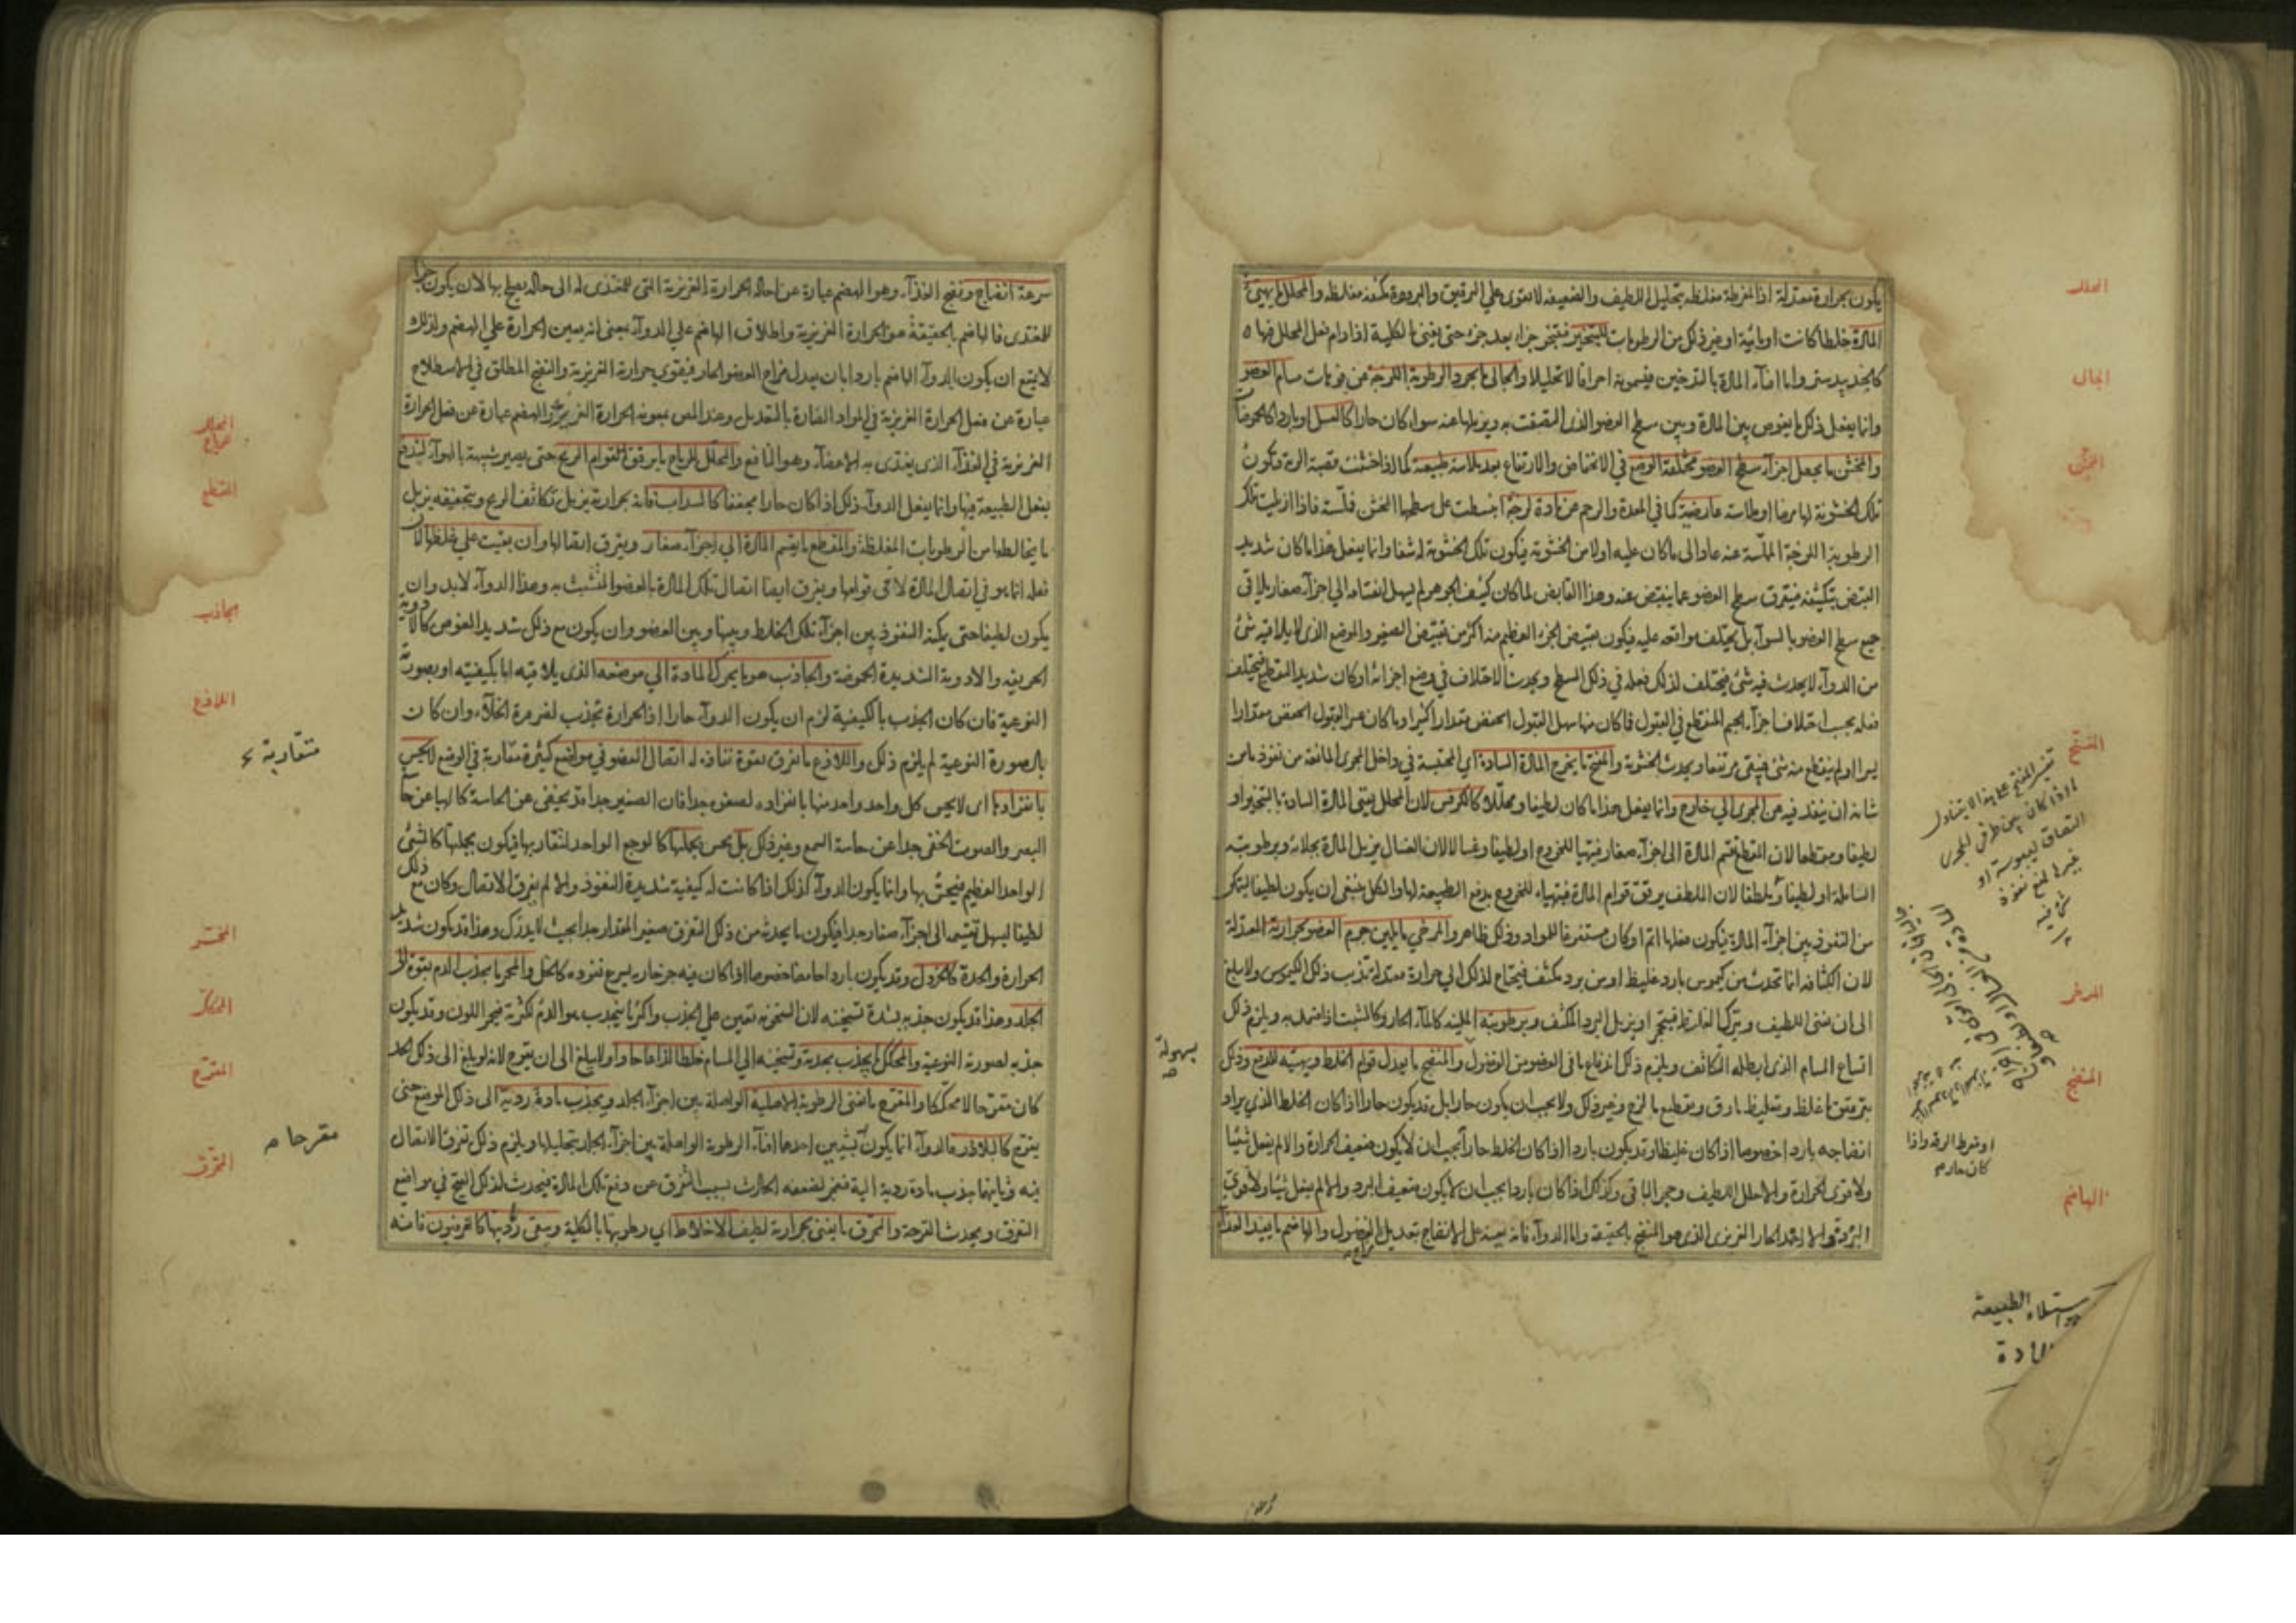 يكون بحرارة معتدلة اذا المفرطة مغلظة بتحليل اللطيف والضعيفة لا تقوى على الترقيق والبرودة مكثفة مغلظة والمحلل ما يهيئ
المادة خلطا كانت او مائية او غير ذلك من الرطوبات للتبخير فتبخر جزءا بعد جزء حتى يفنى بالكلية اذا دام فعل المحلل فيها
كالجندبيدستر واما افناء المادة بالتدخين فيسمونه احراقا لا تحليلا والجالى ما يجرد الرطوبة اللزجة من فوهات مسام العضو
وانما يفعل ذلك بان يغوص بين المادة وبين سطح العضو الذى التصقت به ويزيلها عنه سواء كان حارا كالعسل او باردا
والمخشن ما يجعل اجزاء سطح العضو مختلفة الوضع في الانخفاض والارتفاع بعد ملاسة طبيعية كما اذا خشنت قصبة الرية وتكون
تلك الخشونة لها مرضا او ملاسة عارضية كما في المعدة والرحم من مادة لزجة انبسطت على سطحها الخشن فملسته فاذا ازيلت تلك
الرطوبة اللزجة المملسة عنه عاد الى ما كان عليه اولا من الخشونة فيكون تلك الخشونة له شفاء وانما يفعل هذا ما كان شديد
القبض بتكثيفه فيتفرق سطح العضو عما ينقبض عنه وهذا القابض لما كان كثيف الجوهر لم يسهل انقسامه الى اجزاء صغار يلاقى
جميع سطح العضو بالسواء بل يختلف مواقعه عليه فيكون تقبض الجزء العظيم منه اكثر من تقبض الصغير والموضع الذى لا يلاقيه شئ
من الدواء لا يحدث فيه شئ فيختلف لذلك فعله في ذلك السطح ويحدث الاختلاف في وضع اجزائه او كان شديد التقطيع فيختلف
فعله بحسب اختلاف اجزاء الجسم المنقطع في القبول فما كان منها سهل القبول انخفض مقدارا كثيرا وما كان عسر القبول انخفض مقدارا
يسيرا او لم ينقطع منه شئ فيبقى مرتفعا ويحدث الخشونة والمفتح ما يخرج المادة السادة اي المحتبسة في داخل المجرى المانعة من نفوذ ما من
شانه ان ينفذ فيه من المجرى الى خارج وانما يفعل هذا ما كان لطيفا ومحللا كالكرفس لان المحلل يفنى المادة السادة بالتبخير او
لطيفا ومقطعا لان المقطع يقسم المادة الى اجزاء صغار فيهيا للخروج او لطيفا وغسالا لان الغسال يزيل المادة بجلائه وبرطوبته
السائلة او لطيفا وملطفا لان الملطف يرقق قوام المادة فيتهياء للخروج بدفع الطبيعة لها والكل ينبغى ان يكون لطيفا ليتمكن
من النفوذ بين اجزاء المادة فيكون فعلها اتم او كان مستفرغا للمواد وذلك ظاهر والمرخي ما يلين جرم العضو بحرارته المعتدلة
لان الكثافة انما تحدث من كيموس بارد غليظ او من برد مكثف فيحتاج لذلك الى حرارة معتدلة تذيب ذلك الكيموس ولا يبلغ
الى ان تفنى اللطيف ويترك الغليظ فيتحجر او يزيل البرد المكثف وبرطوبته الملينة كالماء الحار وكالشبت اذا ضمد به ويلزم ذلك
اتساع المسام الذى ابطله التكاثف ويلزم ذلك اندفاع ما في العضو من الفضول والمنضج ما يعدل قوام الخلط ويهيئه للدفع وذلك
بترقيق ما غلظ وتغليظ ما رق وتقطيع ما لزج وغير ذلك ولا يجب ان يكون حارا بل قد يكون حارا اذا كان الخلط الذي يراد
انضاجه باردا خصوصا اذا كان غليظا وقد يكون باردا اذا كان الخلط حارا يجب ان لا يكون ضعيف الحرارة والا لم يفعل شيئا
ولا قوى الحرارة والا حلل اللطيف وحجر الباقى وكذلك اذا كان باردا يجب ان لا يكون ضعيف البرد والا لم يفعل شيئا ولا قوى
البرودة والا اخمد الحار الغريزى الذى هو المنضج بالحقيقة واما الدواء فانه يعينه على الانضاج بتعديل الفضول والهاضم ما يفيد الغذاء
المحلل
الجالى
المخشن
المفتح
المرخى
المنضج
الهاضم
تفسير المفتح بما هذا لا يتناول
او فرط الرقة واذا
كان حاره
واستيلاء الطبيعة
المادة
بسهولة
سرعة انهضام ونضج الغذاء وهو الهضم عبارة عن احالة الحرارة الغريزية التى للمغتذى له الى حالة يصلح بها لان يكون جزءا
للمغتذى فالهاضم بالحقيقة هو الحرارة الغريزية واطلاق الهاضم على الدواء بمعنى انه يعين الحرارة على الهضم ولذلك
لا يمتنع ان يكون الدواء الهاضم باردا بان يعدل مزاج العضو الحار فيقوى حرارته الغريزية والنضج المطلق في الاصطلاح
عبارة عن فعل الحرارة الغريزية في المواد الضارة بالتعديل وعند المص بمعونة الحرارة الغريزية والهضم عبارة عن فعل الحرارة
الغريزية في الغذاء الذى يغتذى به الاعضاء وهو النافع والمحلل للرياح ما يرقق قوام الريح حتى يصير شبيهة بالهواء ليندفع
بفعل الطبيعة فيها وانما يفعل الدواء ذلك اذا كان حارا مجففا كالسداب فانه بحرارته يزيل تكاثف الريح وبتجفيفه يزيل
ما يخالطها من الرطوبات المغلظة والمقطع ما يقسم المادة الى اجزاء صغار ويفرق اتصالها وان بقيت على غلظها لان
فعله انما هو في اتصال المادة لا في قوامها ويفرق ايضا اتصال تلك المادة بالعضو المتشبث به وهذا الدواء لابد وان
يكون لطيفا حتى يمكنه النفوذ بين اجزاء تلك الخلط وبينها وبين العضو وان يكون مع ذلك شديد الغوص كالادوية
الحريفة والادوية الشديدة الحموضة والجاذب هو ما يحرك المادة الى موضعه الذى يلاقيه اما بكيفيته او بصورته
النوعية فان كان الجذب بالكيفية لزم ان يكون الدواء حارا اذ الحرارة تجذب لضرورة الخلاء وان كان
بالصورة النوعية لم يلزم ذلك واللاذع ما يفرق بقوة نفاذه له اتصال العضو في مواضع كثيرة متقاربة في الوضع لا يحس
بانفرادها اى لا يحس كل واحد واحد منها بانفراده لصغره جدا فان الصغير جدا قد يخفى عن الحاسة كالهباء عن حاسة
البصر والصوت الخفى جدا عن حاسة السمع وغير ذلك بل يحس بجملتها كالوجع الواحد لتقاربها فيكون بجملتها كالشئ
الواحد العظيم فيحس بها وانما يكون الدواء كذلك اذا كانت له كيفية شديدة النفوذ والا لم يفرق الاتصال وكان مع ذلك
لطيفا ليسهل تقسيمه الى اجزاء صغار جدا فيكون ما يحدث من ذلك التفرق صغير المقدار جدا بحيث لا يدرك وهذا قد يكون شديد
الحرارة والحدة كالخردل وقد يكون باردا حامضا خصوصا اذا كان فيه جزء حار يسرع نفوذه كالخل والمحمر ما يجذب الدم بقوة الى
الجلد وهذا قد يكون جذبه بشدة تسخينه لان السخونة تعين على الجذب واكثر ما ينجذب هو الدم لكثرته فيحمر اللون وقد يكون
جذبه لصورته النوعية والمحكك ما يجذب بحدته وتسخينه الى المسام خلطا لذاعا حادا ولا يبلغ الى ان يقرح لانه لو بلغ الى ذلك الحد
كان مقرحا لا محككا والمقرح ما يفنى الرطوبة الاصلية الواصلة بين اجزاء الجلد ويجذب مادة ردية الى ذلك الموضع حتى
يتقرح كالبلاذر فالدواء انما يكون بشيئين احدهما افناء الرطوبة الواصلة بين اجزاء الجلد بتحليلها ويلزم ذلك تفرق الاتصال
فيه وثانيهما بجذب مادة ردية اليه فتعجز لضعفه الحادث بسبب التفرق عن دفع تلك المادة فيحدث لذلك القيح في مواضع
التفرق ويحدث القرحة والمحرق ما يفنى بحرارته لطيف الاخلاط اي رطوبتها بالكلية ويبقى رمديتها كالفرفيون فانه
المحلل للرياح
المقطع
الجاذب
اللاذع
متقاربة
المحمر
المحكك
المقرح
مقرحا
المحرق